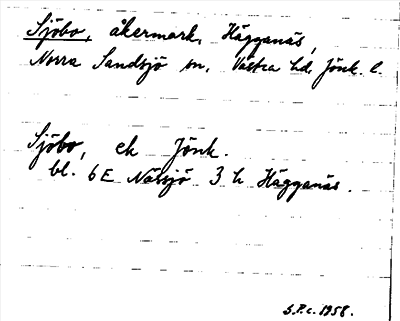 Sjöbo, åkermark, Hägganäs,
Norra Sandsjö sn, Västra hd, Jönk. l.
Sjöbo, ek Jönk.
bl. 6E Nässjö 3 h Hägganäs.
S.P.c. 1958.